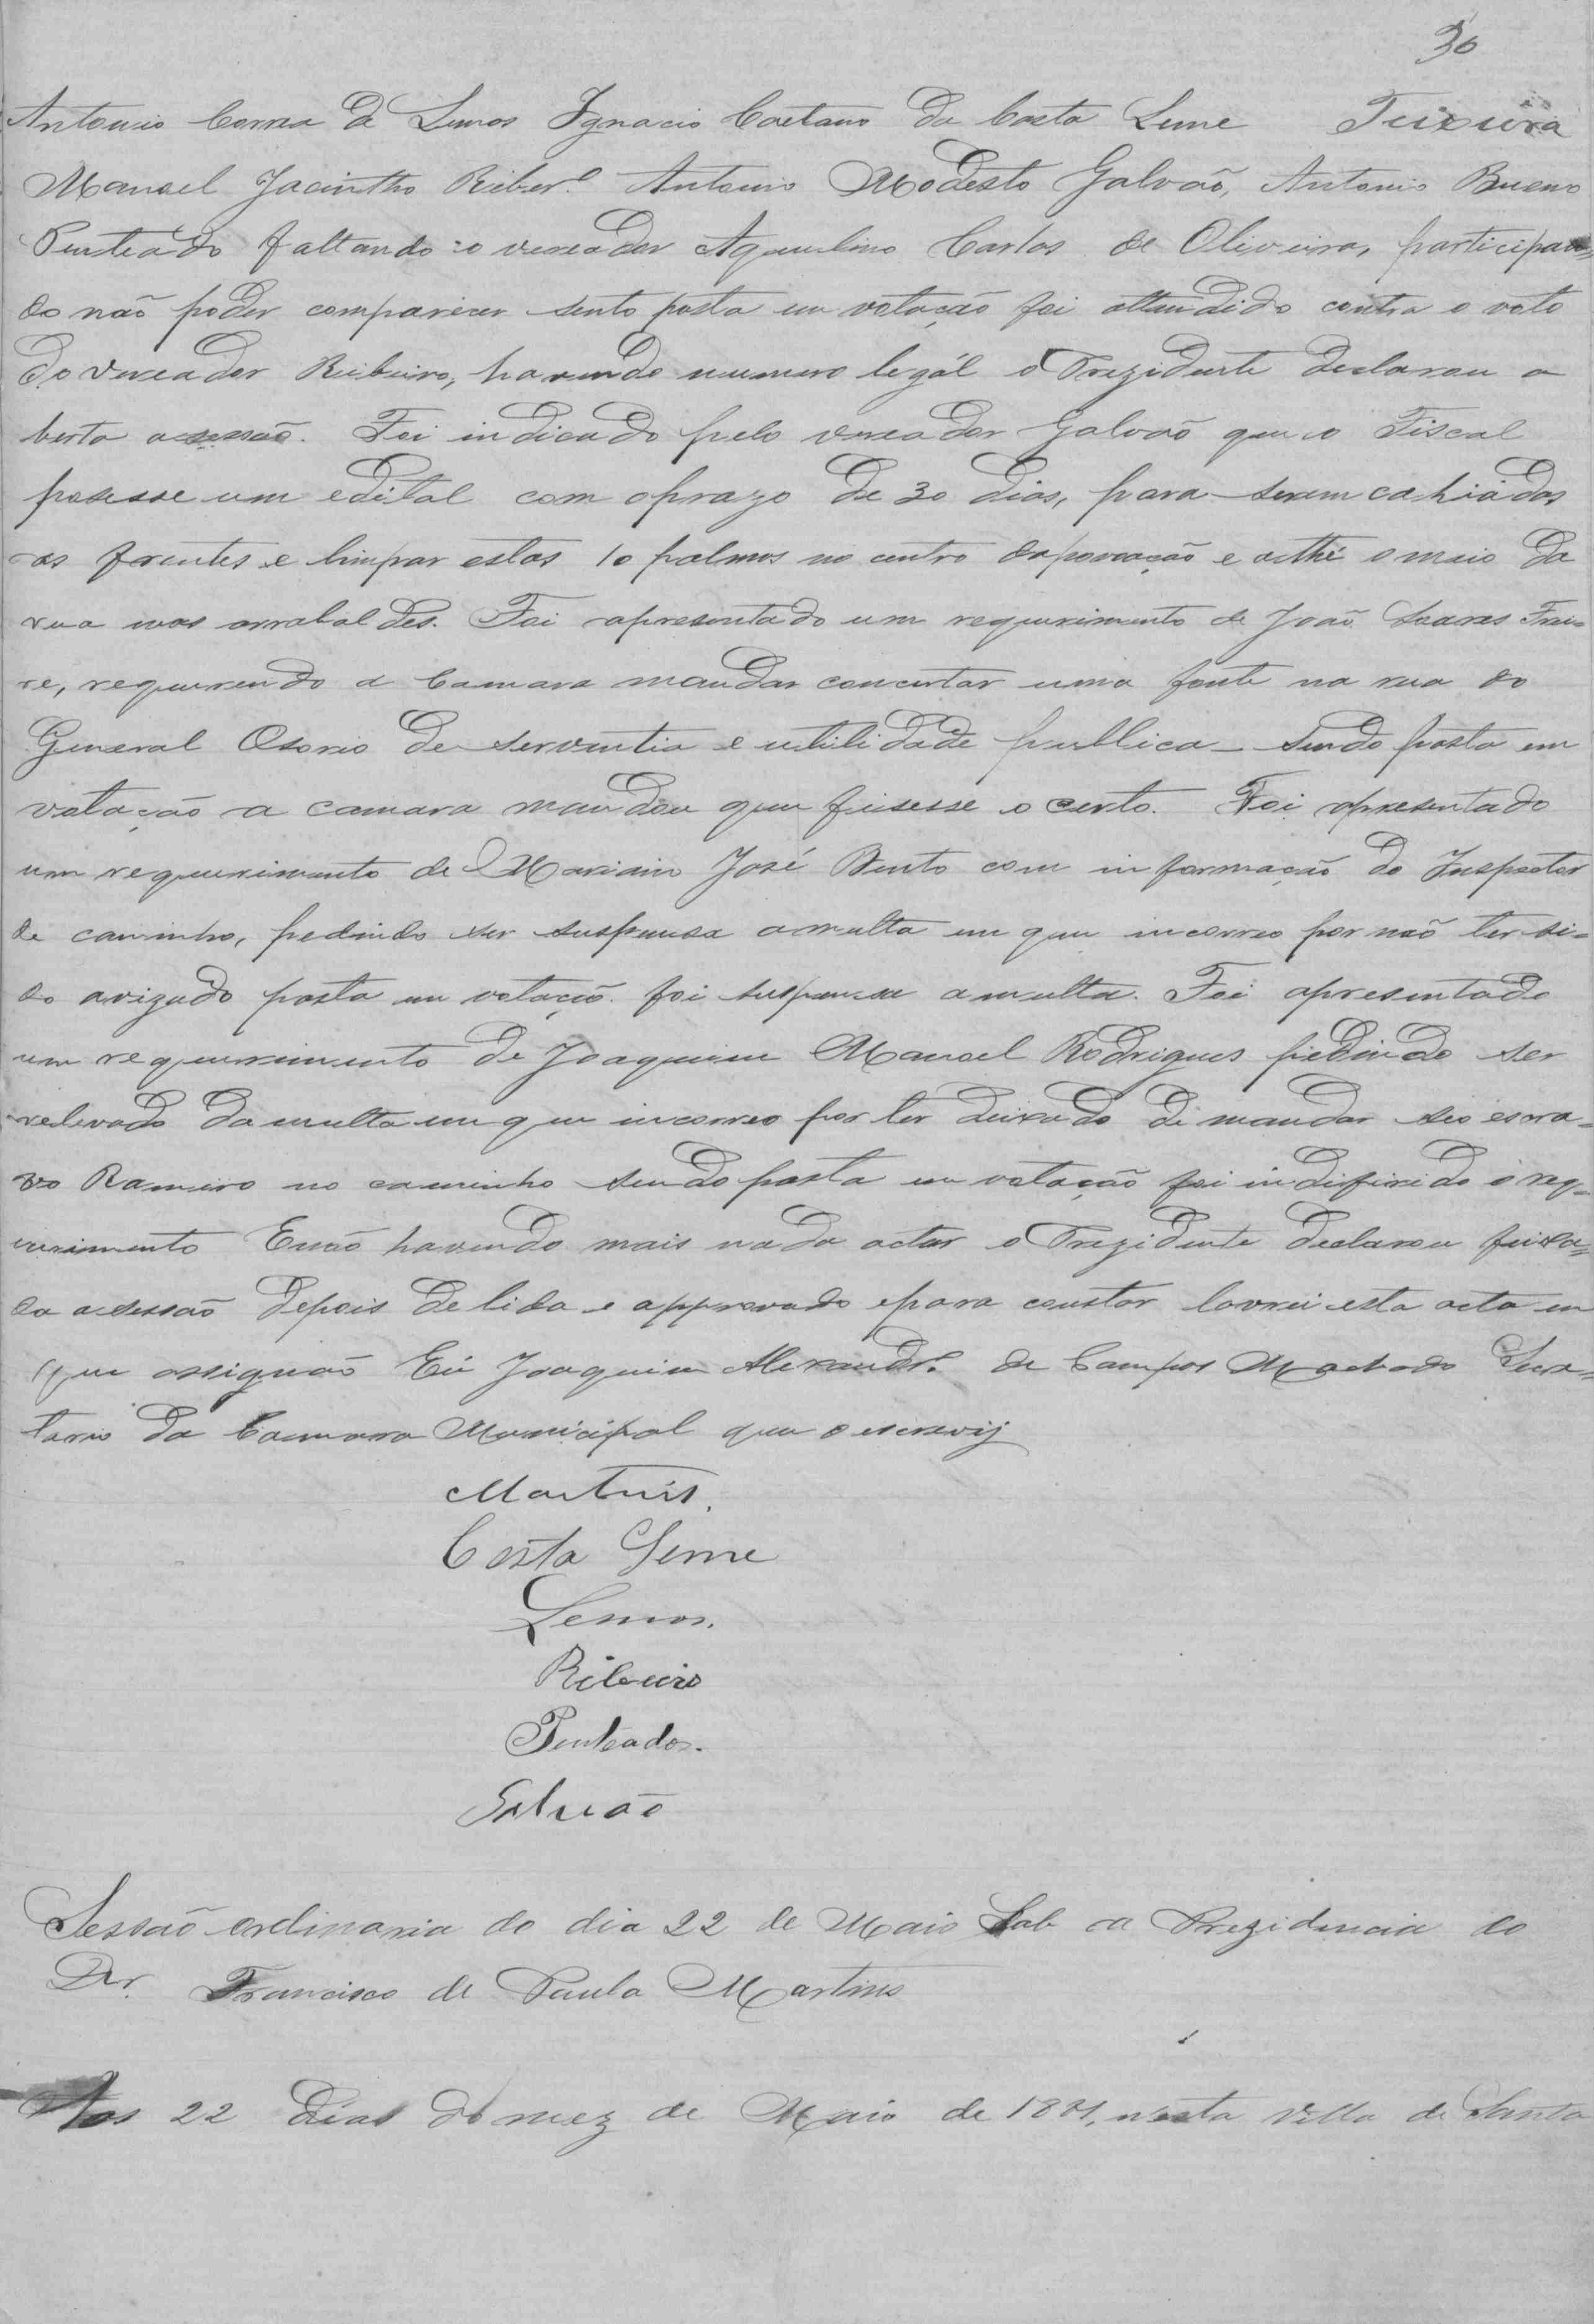 30
Antonio Correa de Lemos Ignacio Caetano da Costa Leme Teixeira
Manoel Jacintho Riber.º Antonio Modesto Galvão, Antonio Bueno
Penteado faltando o vereador Aquilino Carlos de Oliveira, participan=
do não poder comparecer sento posta em votação foi attendido contra o voto
do vereador Ribeiro, havendo numero legál o Prezidente declarou a
berta a sessão. Foi indicado pelo vereador Galvão que o Fiscal
posesse um edital com o prazo de 30 dias, para serem cahiádas
as frentes e limpar estas 10 palmos no centro da povoação e athé o meio da
rua nos arrabaldes. Foi apresentado um requerimento de João Soares Frei=
re, requerendo a Camara mandar concertar uma fonte na rua do
General Osorio de serventia e utilidade publica - sendo posta em
votação a camara mandou que fisesse o certo. Foi apresentado
um requerimento de Mariano José Bento com informação do Inspector
de caminho, pedindo ser suspensa a multa em que incorreo por não ter si=
do avizado posta em votação foi suspensa a multa. Foi apresentado
um requerimento de Joaquim Manoel Rodrigues pedindo ser
relevado da multa em que incorreo por ter deixado de mandar seo escra=
vo Ramiro no caminho sendo posta em votação foi indifirido o req=
uerimento E não havendo mais nada actar o Prezidente declarou feixa=
da a sessão depois de lida e approvado e para constar lavrei esta acta em
que assignão Eu Joaquim Alexandr.e de Campos Machado Secre=
tario da Camara Municipal que o escrevij
Martins.
Costa Leme
Lemos.
Ribeiro
Penteado.
Galvão
Sessão ordinaria do dia 22 de Maio Sob a Prezidencia do
Dr. Francisco de Paula Martins
Aos 22 dias do mez de Maio de 1881, nesta Villa de Santa